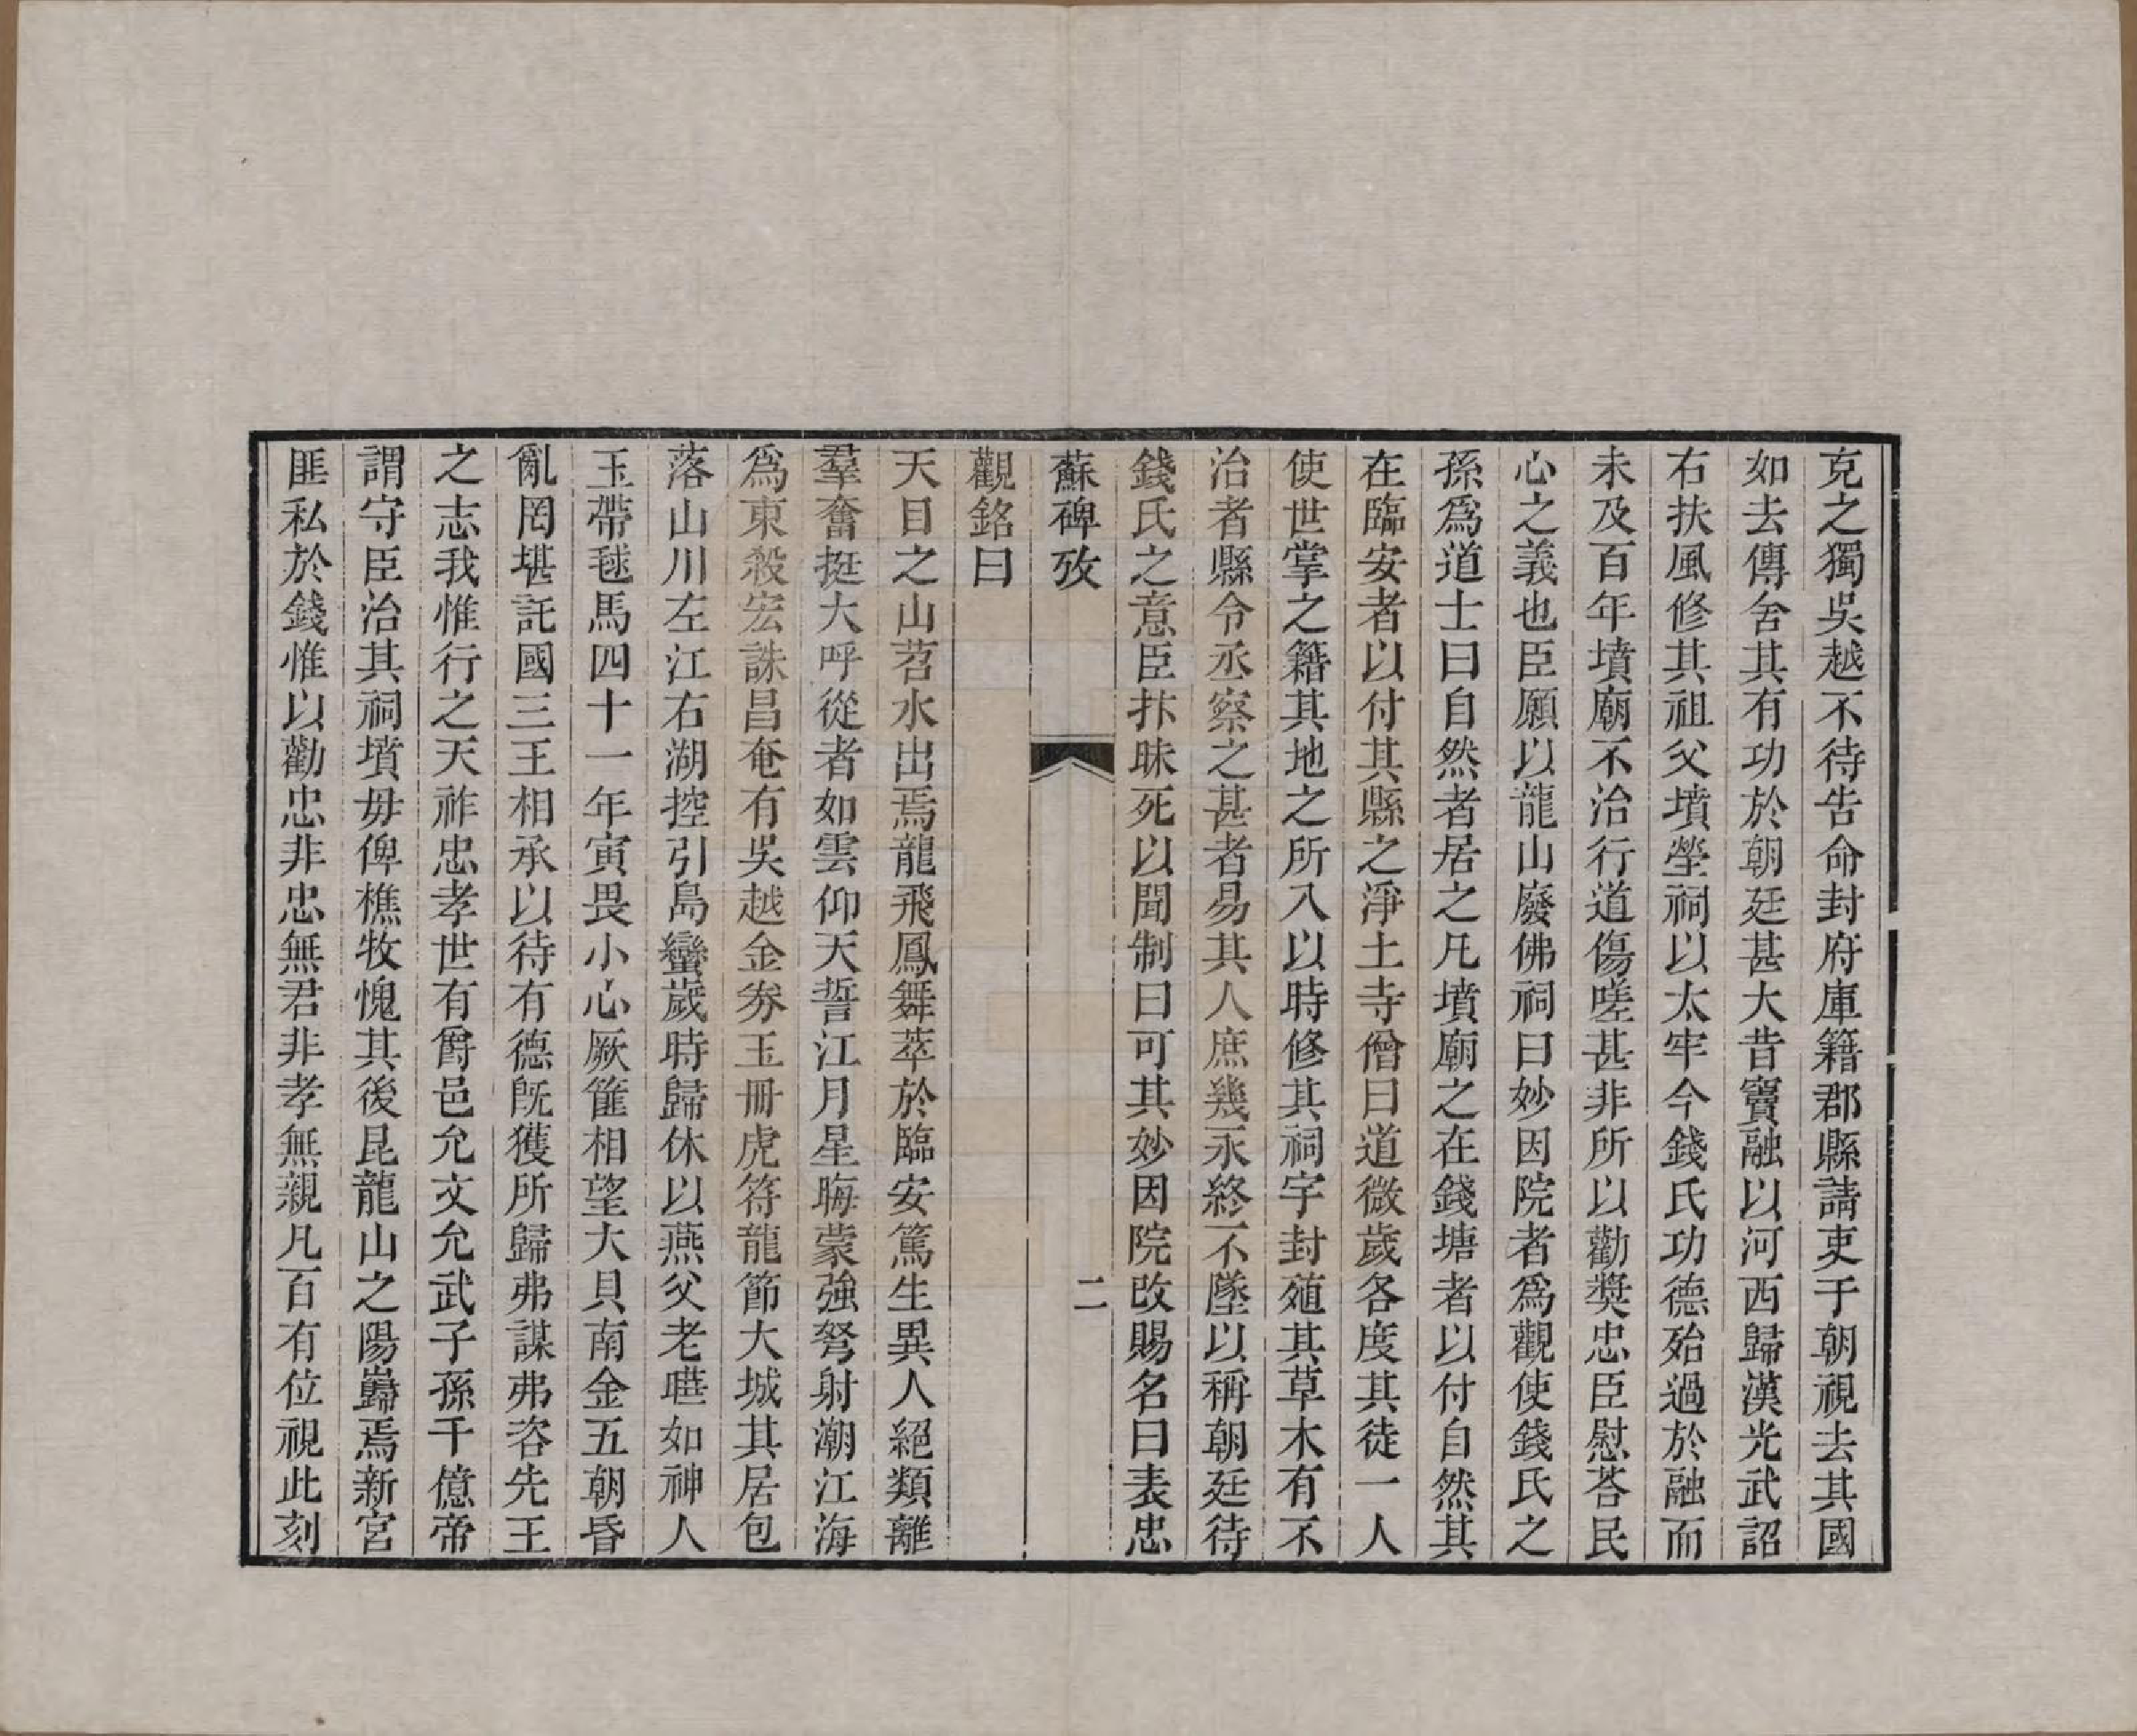 克之獨吳越不待告命封府庫籍郡縣請吏于朝視去其國
如去傳舍其有功於朝廷甚大昔竇融以河西歸漢光武詔
右扶風修其祖父墳塋祠以太牢今錢氏功德殆過於融而
未及百年墳廟不治行道傷嗟甚非所以勸奬忠臣慰荅民
心之義也臣願以龍山廢佛祠曰妙因院者爲觀使錢氏之
孫爲道士曰自然者居之凡墳廟之在錢塘者以付自然其
在臨安者以付其縣之淨土寺僧曰道微歲各度其徒一人
使世掌之籍其地之所入以時修其祠宇封殖其草木有不
治者縣令丞察之甚者易其人庶幾永終不墜以稱朝廷待
錢氏之意臣抃昧死以聞制曰可其妙因院改賜名曰表忠
蘇碑攷
二
觀銘曰
天目之山苕水出焉龍飛鳳舞萃於臨安篤生異人絕類離
羣奮挺大呼從者如雲仰天誓江月星晦蒙強弩射潮江海
爲東殺宏誅昌奄有吳越金券玉冊虎符龍節大城其居包
落山川左江右湖控引島蠻歲時歸休以燕父老曄如神人
玉帶毬馬四十一年寅畏小心厥篚相望大貝南金五朝昏
亂罔堪託國三王相承以待有德旣獲所歸弗謀弗咨先王
之志我惟行之天祚忠孝世有爵邑允文允武子孫千億帝
謂守臣治其祠墳毋俾樵牧愧其後昆龍山之陽巋焉新宮
匪私於錢惟以勸忠非忠無君非孝無親凡百有位視此刻